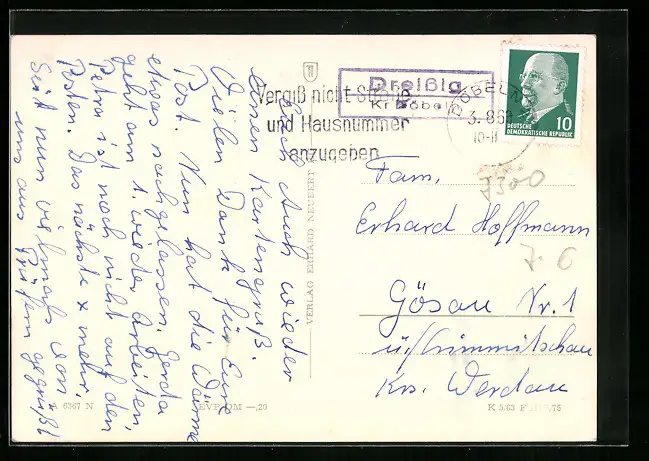 Euch auch wieder
einen Kartengruß.
Vielen Dank für Eure
Post. Nun hat die Wärme
etwas nachgelassen. Gerda
geht am 1. wieder arbeiten,
Petra ist noch nicht auf den
Posten. Das nächste x mehr.
Seid nun vielmals von
uns aus Grüßen gegrüßt
VERLAG ERHARD NEUBERT
6367 N
EVP DM —,20
K 5/63
Vergiß nicht Straße
und Hausnummer
anzugeben
Dreißig
Kr. Döbeln
DÖBELN
DEUTSCHE
DEMOKRATISCHE REPUBLIK
10
7300
Fam.
Erhard Hoffmann
7. 6
Gösau Nr. 1
ü./Crimmitschau
Krs. Werdau